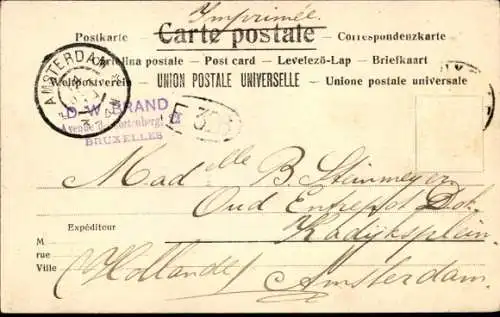 Imprimée
Postkarte Carte postale – Correspondenzkarte
Cartolina postale – Post card – Levelező-Lap – Briefkaart
Weltpostverein – UNION POSTALE UNIVERSELLE – Unione postale universale
AMSTERDAM
D. W. BRAND
BRUXELLES
E 326
Mad elle B. Steinmeyer
Oud Entrepot Dok.
Kadijksplein.
Amsterdam.
(Hollande)
Expéditeur
M
rue
Ville